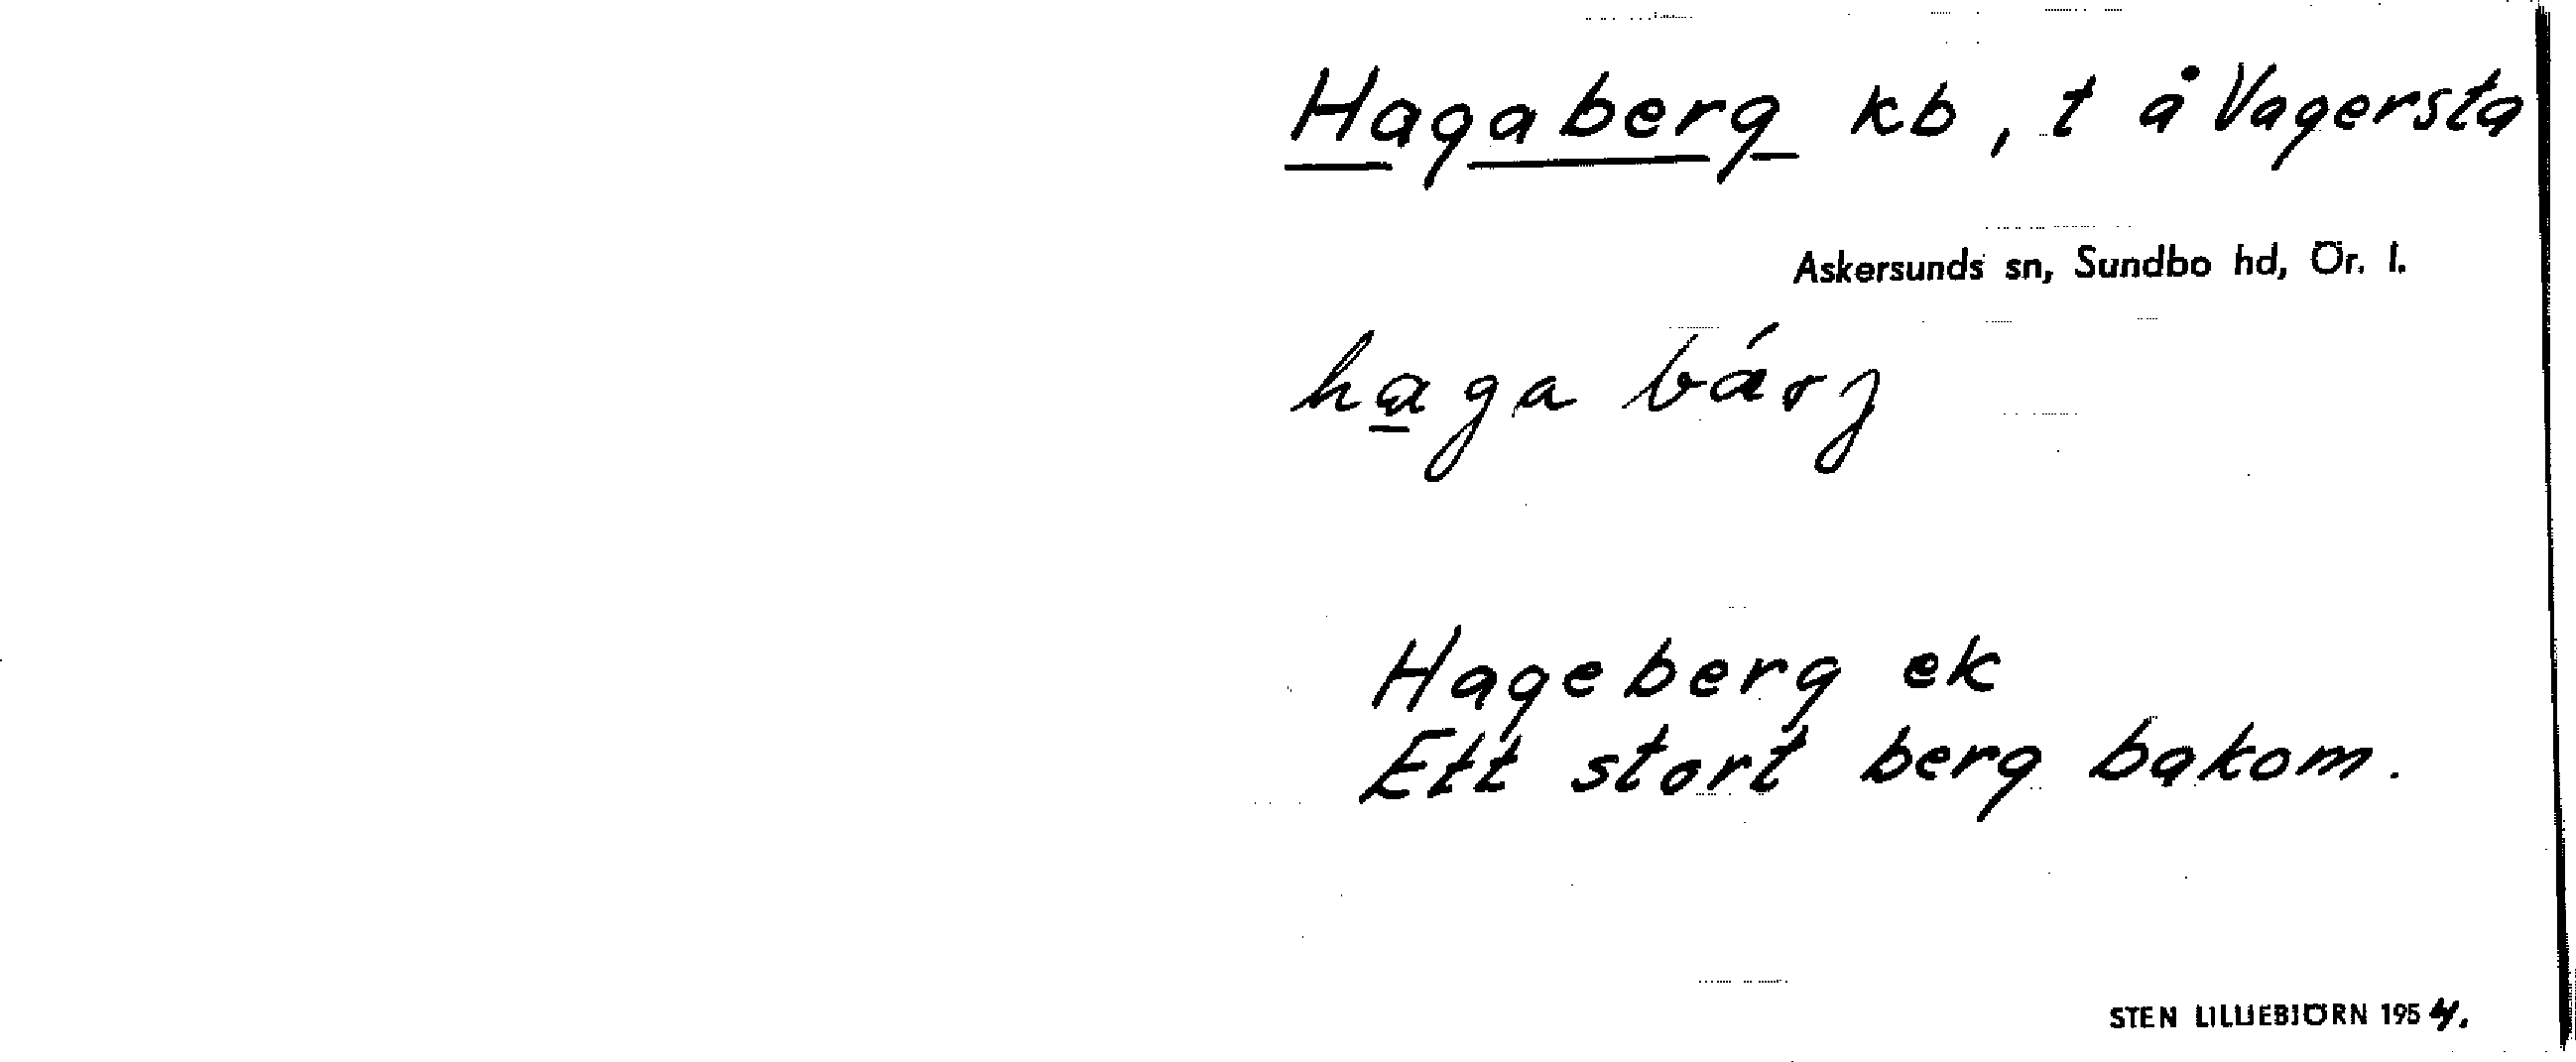 Hagaberg kb, t å Vagersta
Askersunds sn, Sundbo hd, Ör. l.
haga bárj
Hageberg ek
Ett stort berg bakom.
STEN LILLIEBJÖRN 1954.